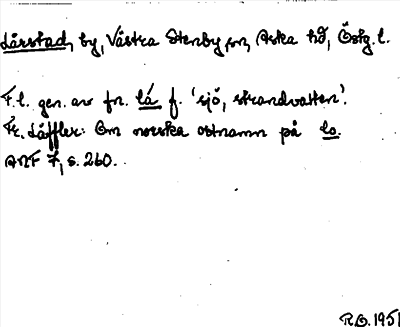 Lårstad, by, Västra Stenby sn, Aska hd, Östg.l.
F.l. gen. av fn. lá f. 'sjö, strandvatten'.
Fr. Läffler: Om norska ortnamn på lo.
ANF 7, s. 260.
R.O. 1951